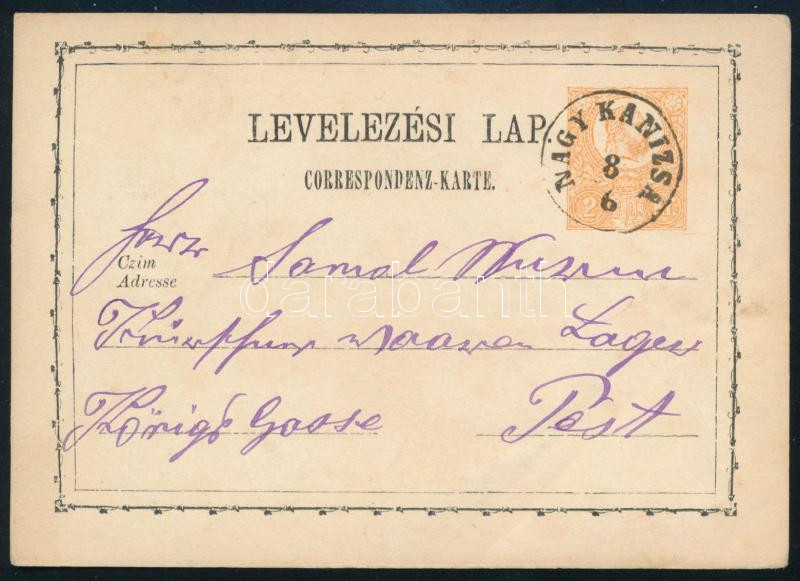 LEVELEZÉSI LAP
CORRESPONDENZ-KARTE.
NAGY KANIZSA
8
6
2
Herr
Czim
Adresse
Samol
Kürschner waaren Lager
Königs Gasse Pest
darabanth